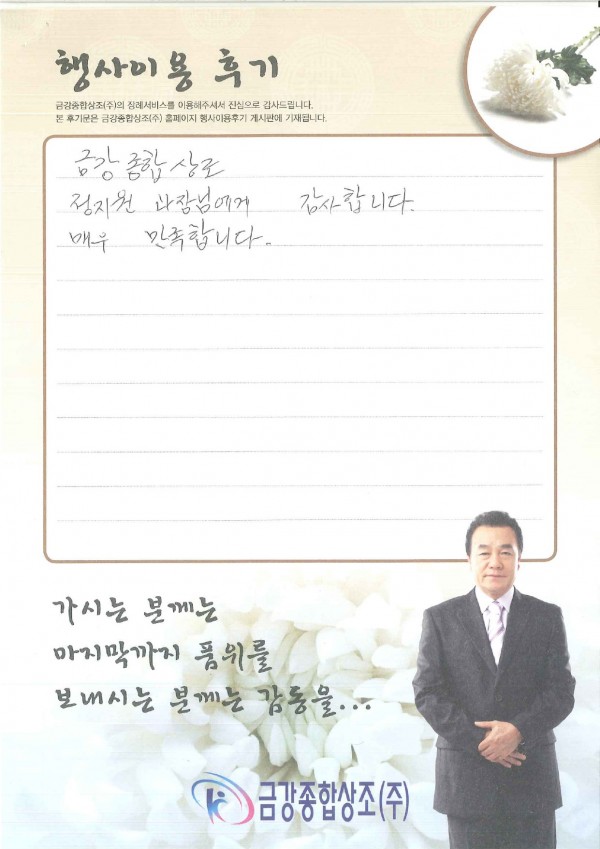 행사이용 후기
금강종합상조(주)의 장례서비스를 이용해주셔서 진심으로 감사드립니다.
본 후기문은 금강종합상조(주) 홈페이지 행사이용후기 게시판에 기재됩니다.
금강 종합 상조
정지원 과장님에게 감사합니다.
매우 만족합니다.
가시는 분께는
마지막까지 품위를
보내시는 분께는 감동을...
금강종합상조(주)